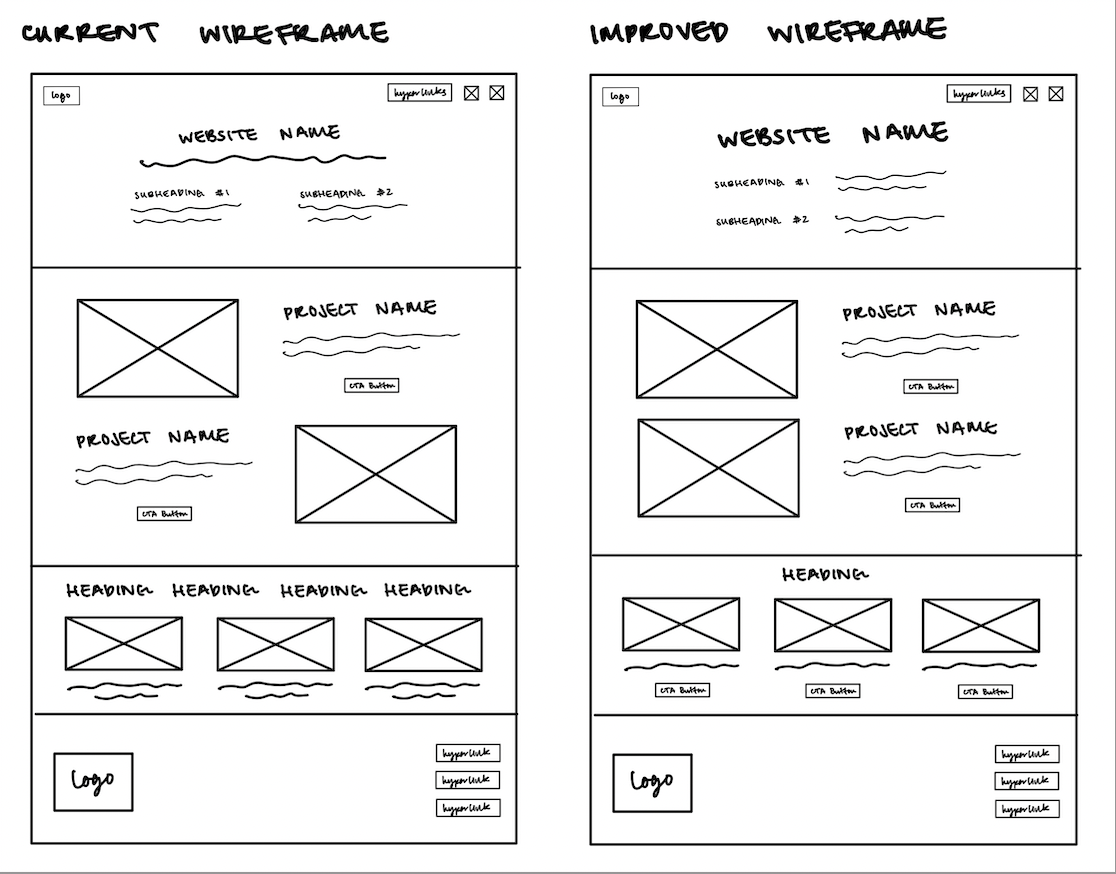 CURRENT WIREFRAME
logo
hyperlinks
WEBSITE NAME
SUBHEADING #1
SUBHEADING #2
PROJECT NAME
CTA Button
PROJECT NAME
CTA Button
HEADING HEADING HEADING HEADING
logo
hyperlink
hyperlink
hyperlink
IMPROVED WIREFRAME
logo
hyperlinks
WEBSITE NAME
SUBHEADING #1
SUBHEADING #2
PROJECT NAME
CTA Button
PROJECT NAME
CTA Button
HEADING
CTA Button CTA Button CTA Button
logo
hyperlink
hyperlink
hyperlink